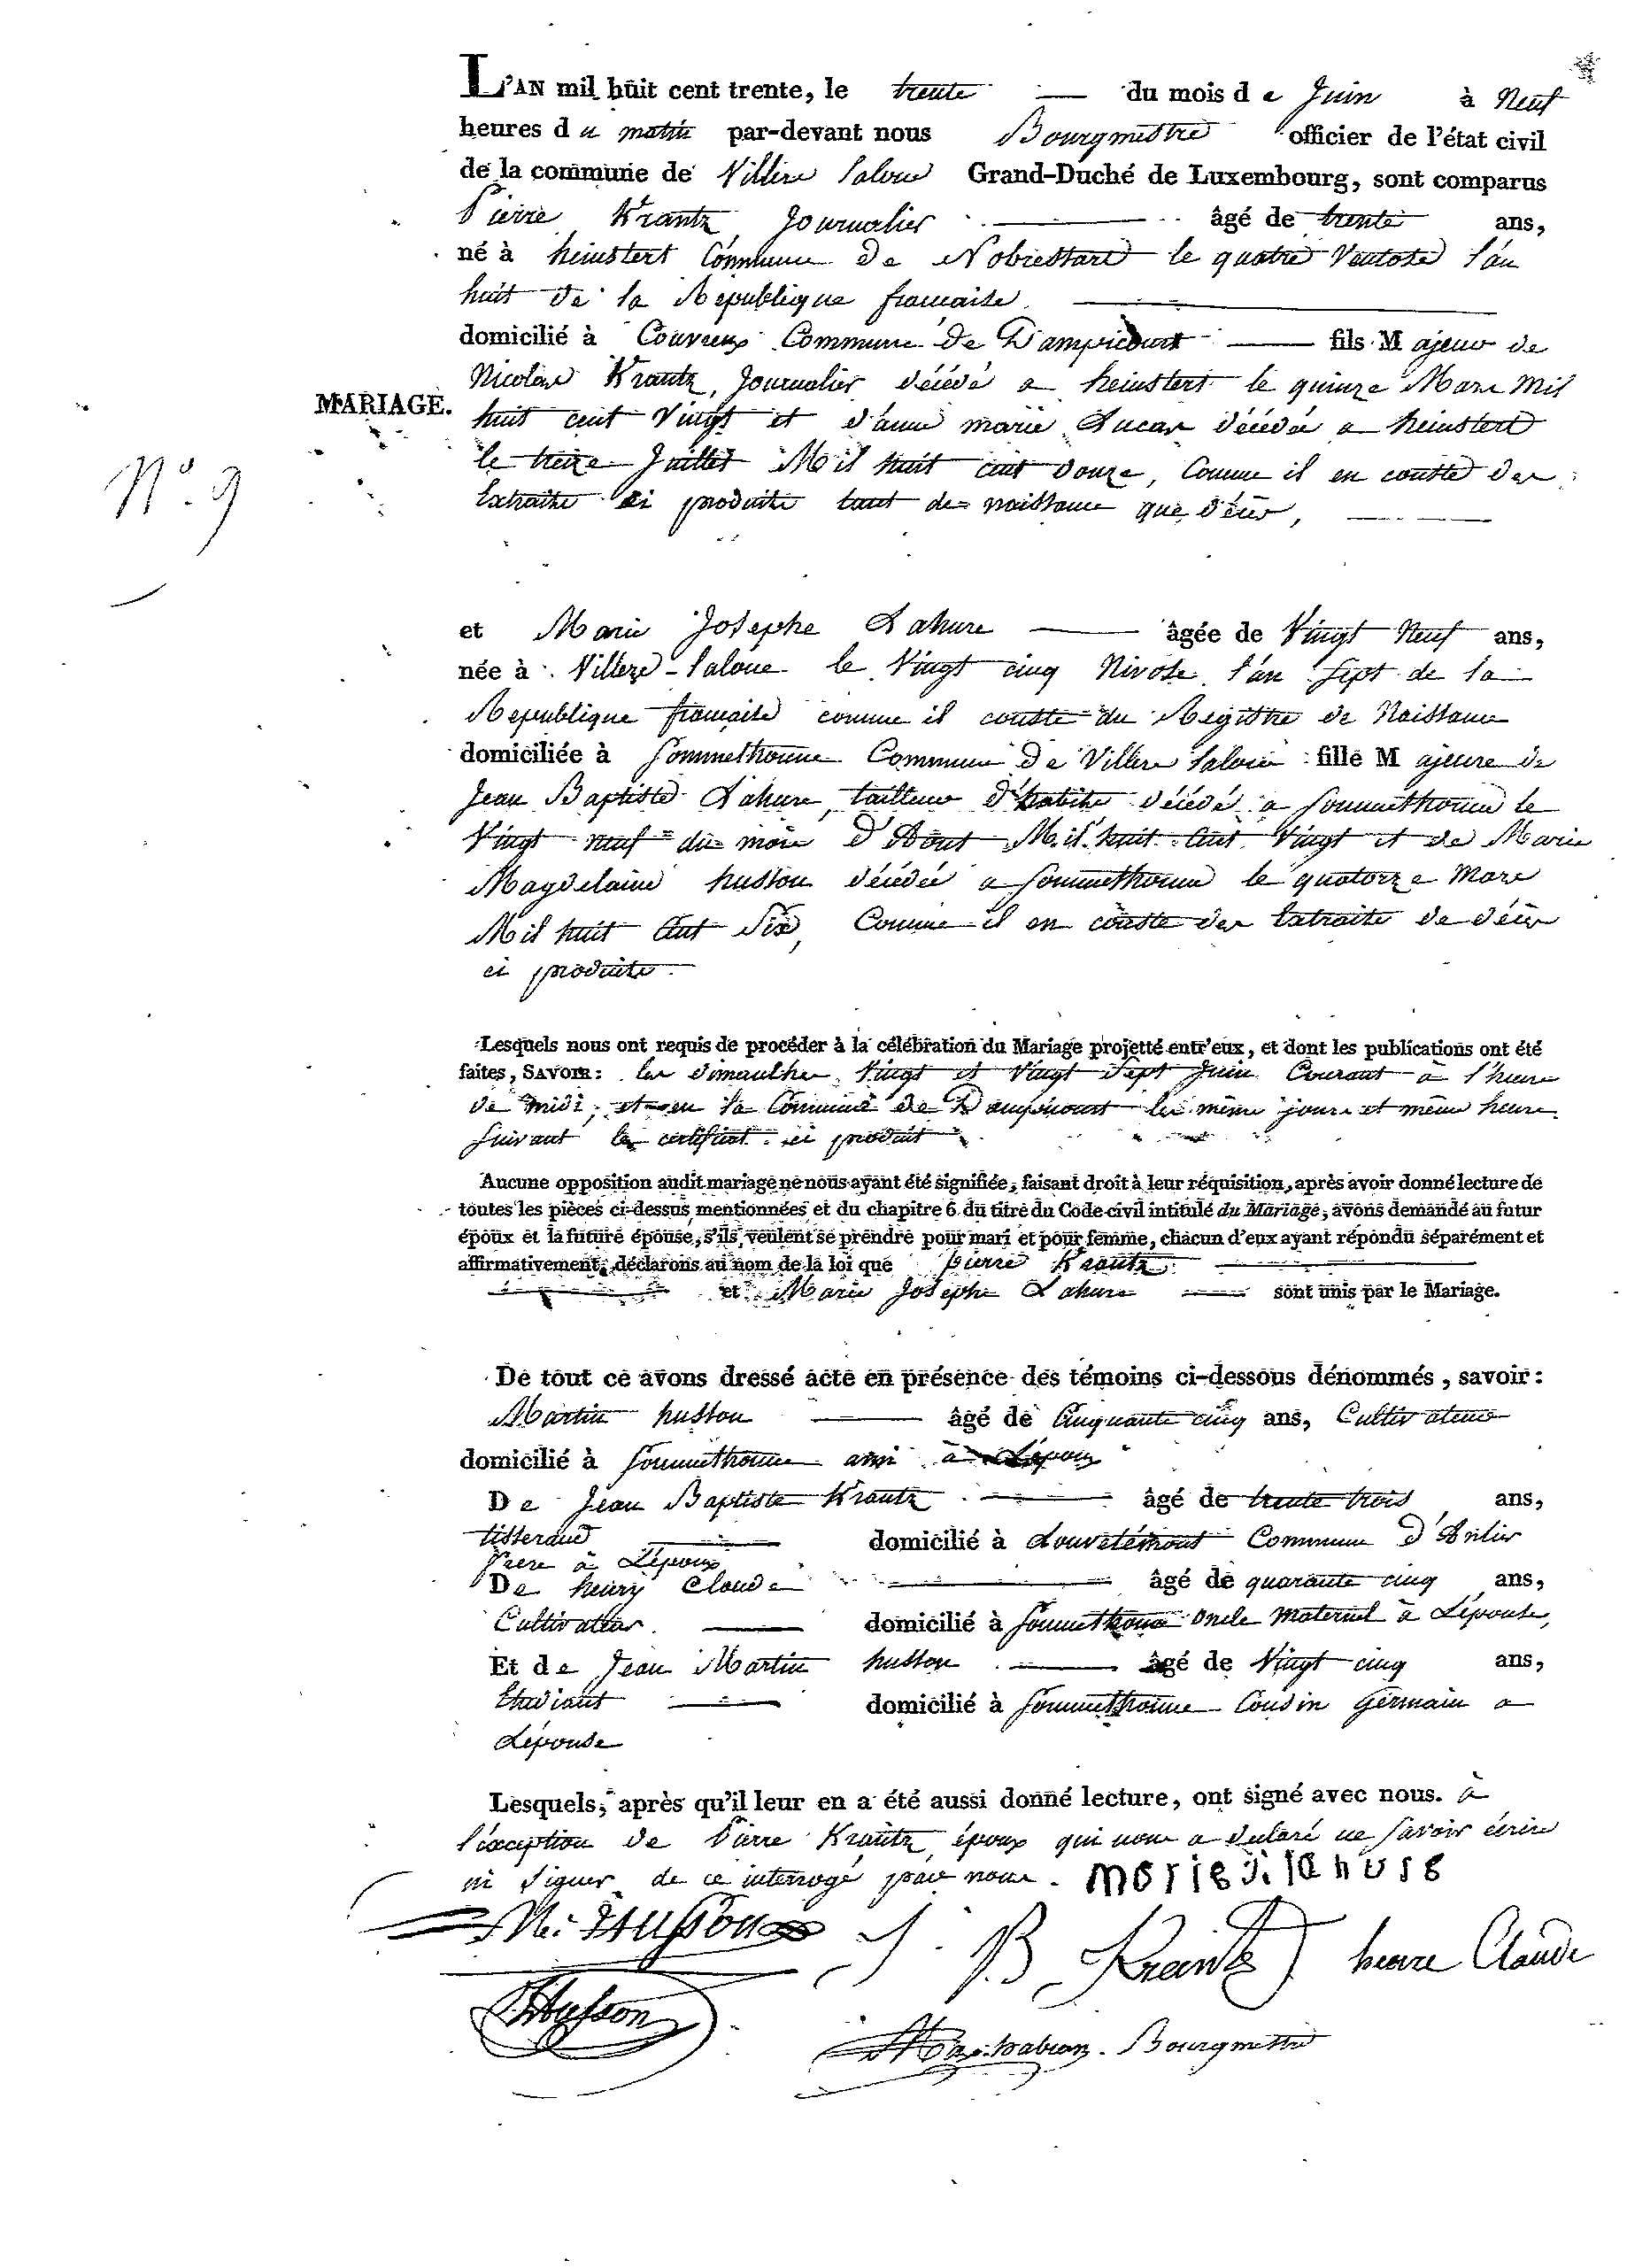 L'AN mil huit cent trente, le trente du mois de Juin à Neuf
heures du matin par-devant nous Bourgmestre officier de l'état civil
de la commune de Villers laloue Grand-Duché de Luxembourg, sont comparus
Pierre Krantz, Journalier âgé de trente ans,
né à heinstert Commune de Nobressart le quatre Ventose l'an
huit de la Republique francaise.
domicilié à Couvreux Commune de Dampicourt fils Majeur de
MARIAGE.
N.° 9
Nicolas Krantz, Journalier décédé a heinstert le quinze Mars Mil
huit cent Vingt et d'anne marie Lucas décédée a heinstert
le treize Juillet Mil huit cent douze, Comme il en conste des
Extraits ci produits tant de naissance que décès,
et Marie Josephe Lahure âgée de Vingt Neuf ans,
née à Villers-laloue le Vingt cinq Nivose l'an sept de la
Republique francaise comme il conste du Registre de Naissance
domiciliée à Sommethonne Commune de Villers laloue fille Majeure de
Jean Baptiste Lahure, tailleur d'habits décédé a Sommethonne le
Vingt neuf du mois d'Aout Mil huit Cent Vingt et de Marie
Magdelaine husson décédée a Sommethonne le quatorze Mars
Mil huit Cent Six, Comme il en conste des Extraits de décès
ci produits.
Lesquels nous ont requis de procéder à la célébration du Mariage projetté entr'eux, et dont les publications ont été
faites, SAVOIR: les dimanches Vingt et Vingt Sept Juin Courant à l'heure
de midi, et en la Commune de Dampicourt les même jours et même heure
suivant le certificat ci produit
Aucune opposition audit mariage ne nous ayant été signifiée, faisant droit à leur réquisition, après avoir donné lecture de
toutes les pièces ci-dessus mentionnées et du chapitre 6 du titre du Code civil intitulé du Mariage, avons demandé au futur
époux et la future épouse, s'ils veulent se prendre pour mari et pour femme, chacun d'eux ayant répondu séparément et
affirmativement, déclarons au nom de la loi que pierre Krantz
et Marie Josephe Lahure sont unis par le Mariage.
De tout ce avons dressé acte en présence des témoins ci-dessous dénommés, savoir:
Martin husson âgé de Cinquante cinq ans, Cultivateur
domicilié à Sommethonne ami à Lépoux
De Jean Baptiste Krantz âgé de trente trois ans,
tisserand domicilié à Louvetémont Commune d'Anlier
frere à Lépoux
De henry Claude âgé de quarante cinq ans,
Cultivateur domicilié à Sommethonne oncle maternel à Lépouse,
Et de Jean Martin husson âgé de Vingt cinq ans,
Etudiant domicilié à Sommethonne Cousin Germain a
Lépouse
Lesquels, après qu'il leur en a été aussi donné lecture, ont signé avec nous. à
l'éxception de Pierre Krantz époux qui nous a declaré ne savoir écrire
ni Signer de ce interrogé par nous. marie j. lahure
M. Husson J. B. Krantz henre Claude
Husson
Bourgmestre